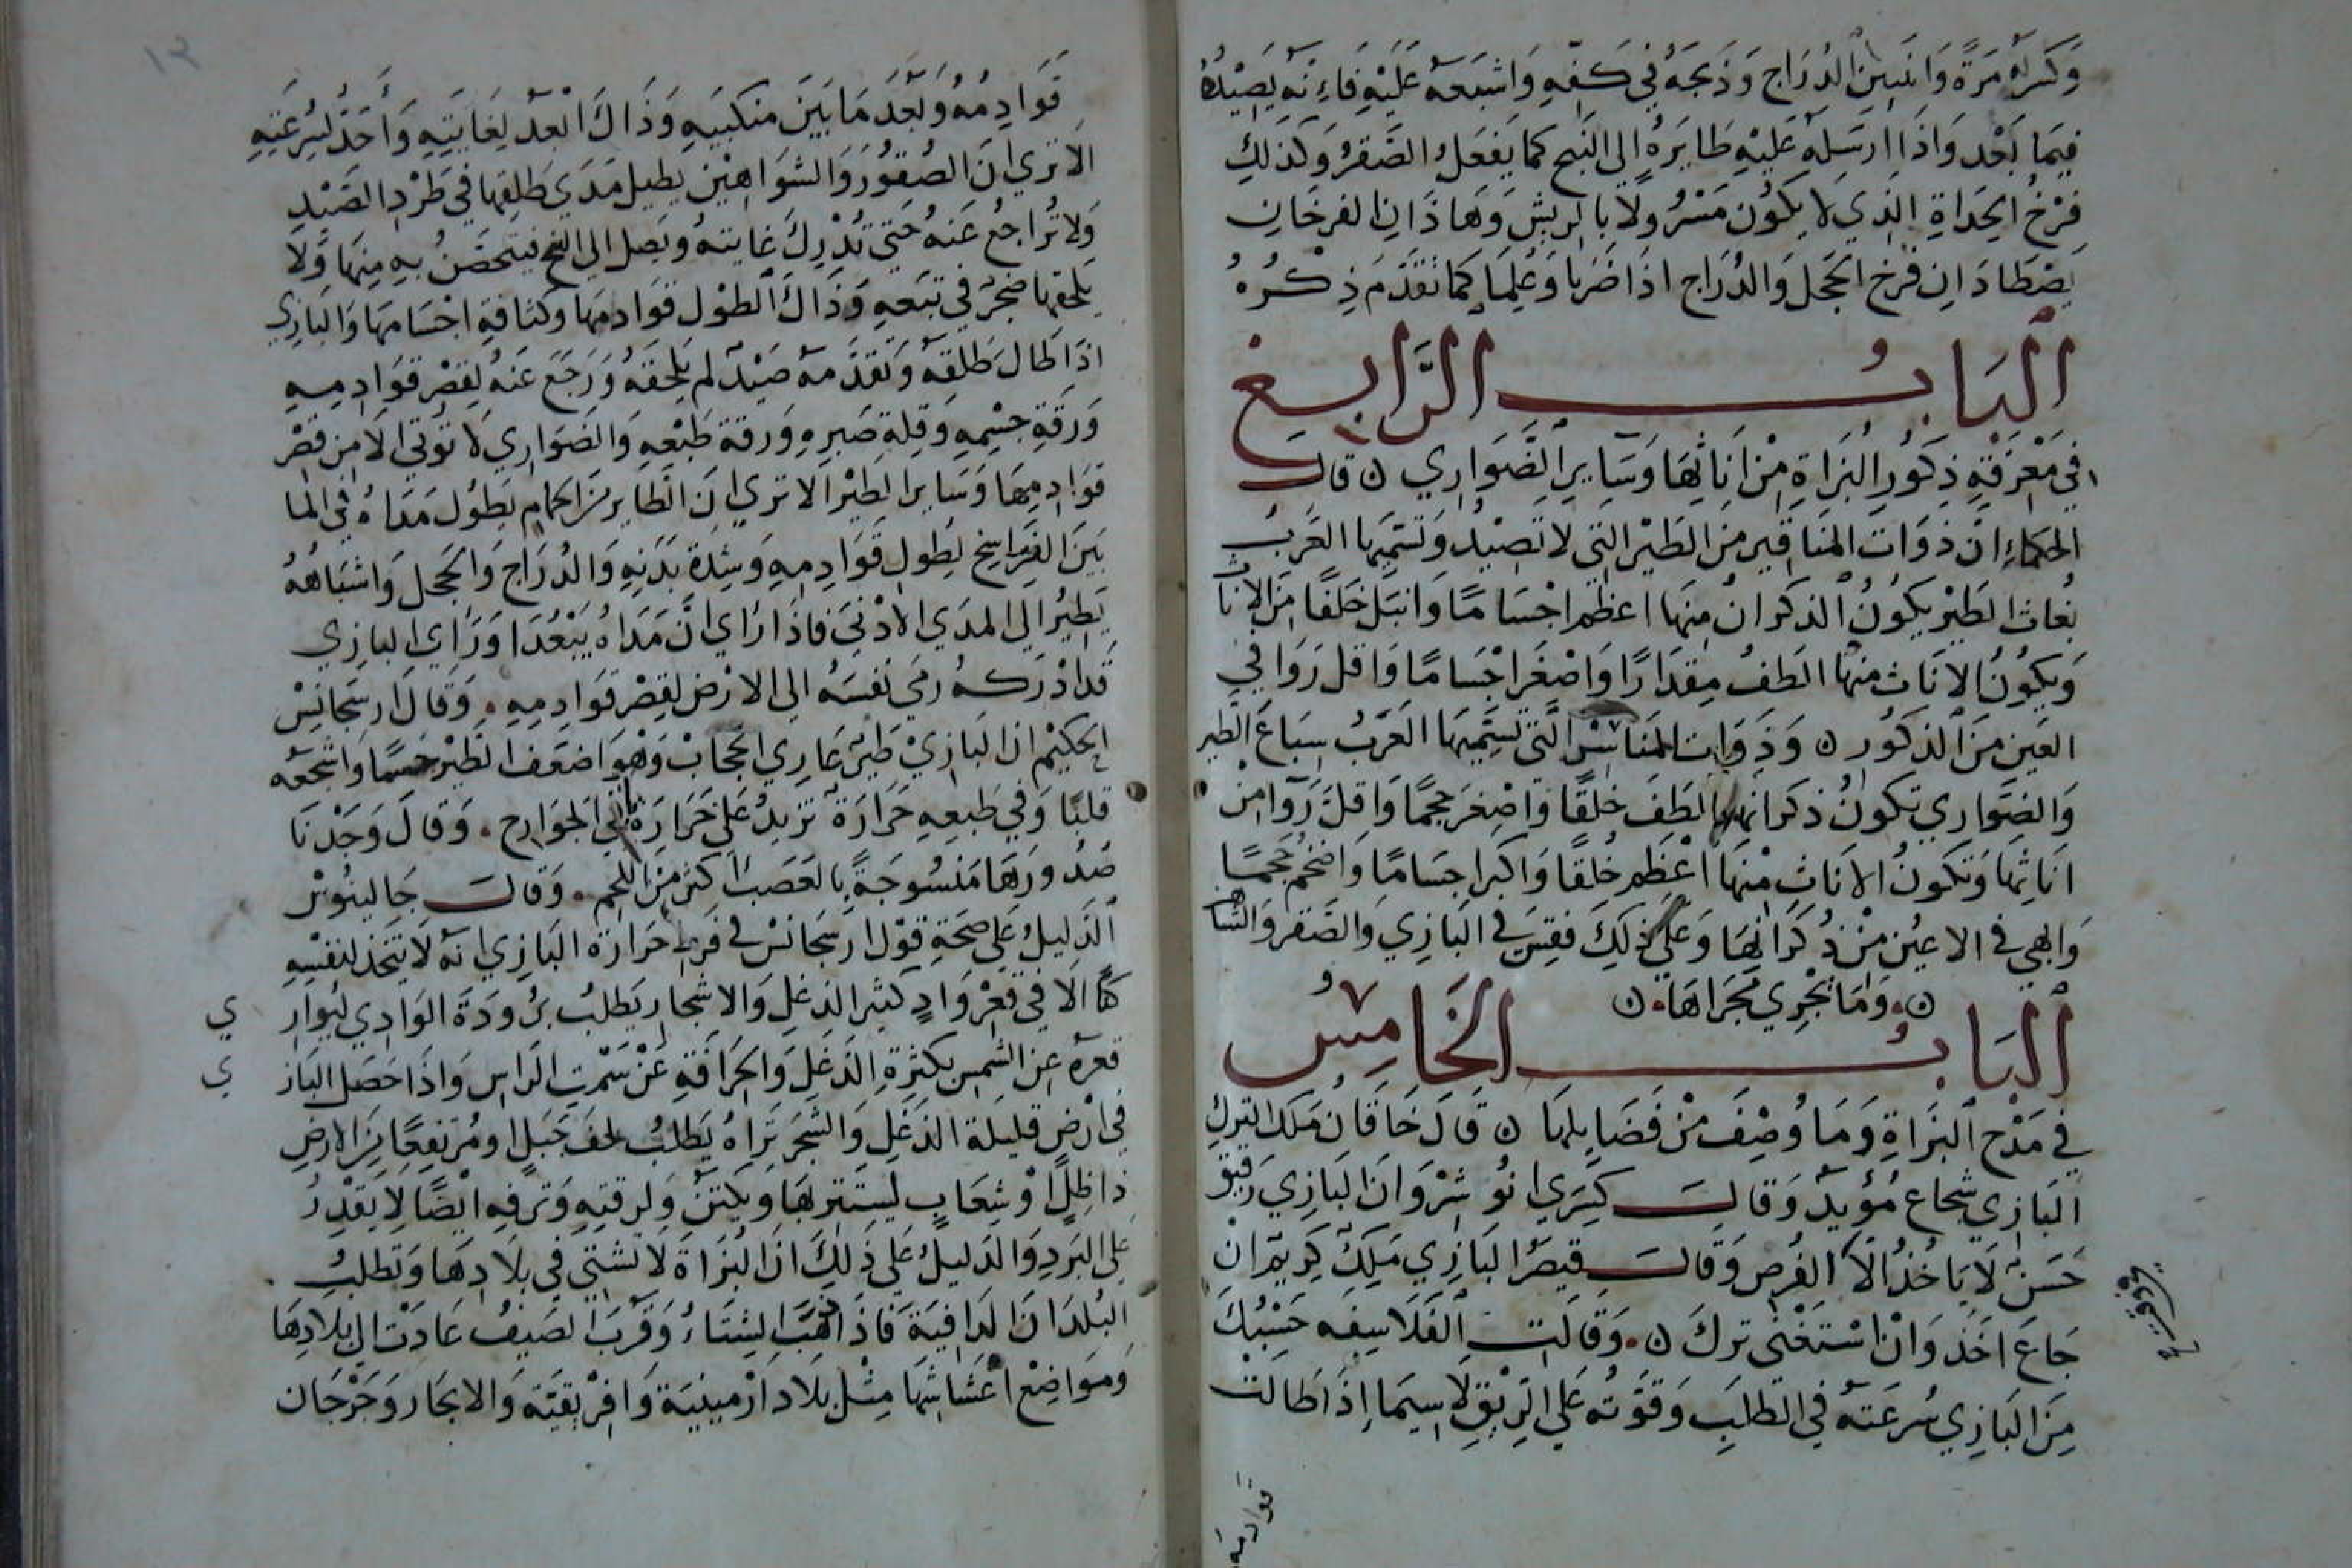 وَكسَرلَهُ مَرَةً وَاثنين الدُرَاج وَذبحَهُ في كَفِهِ وَاشبَعَهُ عَلَيْهِ فَاِنَهُ يَصِيْدُهُ
فِيمَا بَعْد وَاذَا ارسَلهِ عَليْهِ طَايَرَهُ الي النَبج كما يَفعَلُ الصَقرُ وَكذلكِ
فِرْخُ الحِدَاةِ الذِي لا يكُون مَسْرُولاً بالرِيشِ وَهَاذَانِ الفرخَانِ
يَصْطَادَانِ فرْخ الحَجل وَالدُرَاج اذَا ضَرَبا وَعُلِمَا كمَا تقَدَمَ ذِكْرُهُ
البَابُ الرَّابِع
في مَعْرفَةِ ذِكُورِ البُزَاةِ مِنْ اِنَاثِهَا وَسَايِرِ الضَوَارِي ه قالَ
الحكمَاءِ انَ ذوَات المنَاقِير مِنَ الطَيْرِ التِي لاتَصِيْدُ وَتُسَمِيهَا العَرَبُ
بُغاث الطَيْر يكُونُ الذكرَانُ مِنهَا اعظم اجْسَامًا وَانبَل خَلقًا مِنَ الاِنَاث
وَيكُونُ الانَاث مِنهَا الطَفُ مِقدَارًا وَاصْغَر اجْسَامًا وَاقل رَوَا في
العَين مِنَ الذكُور ه وَذوَات المنَاسِر التِي تُسَمِيهَا العَرَبُ سِبَاعَ الطَير
وَالضَوَارِي تكونُ ذكرَانهَا الطَفَ خَلقًا وَاصْغرَ حجمًا وَاقلَ رَوَا مِنْ
اِنَاثِهَا وَتكونُ الانَاث مِنهَا اعْظَم خَلقًا وَاكبَر اجسَامًا وَاضخم حجمًا
وَابهي في الاعيُن مِنْ ذُكرَانِهَا وَعَلي ذلِكَ فقِسَ في البَازِي وَالصَقر وَالشاهين
ه. وَمَا يَجْرِي مَجرَاهَا. ه
البَابُ الخَامِسُ
في مَدْح البُزَاةِ وَمَا وُصِفَ مِنْ فَضَايلهَا ه قَالَ خَاقَانُ مَلك التركِ
البَازِي شجَاع مُؤيدٌ وَقالَ كِسْرَي انُوشِرْوَان البَازِي رَفيق
حَسَنٌ لا يَاخُذ الا الفُرص وَقالَ قيصَر البَازِي مَلِكٌ كِريمٌ انْ
جَاعَ اخَذ وَانْ اسْتَغنَي تركَ ه. وَقالتِ الفَلاسِفَه حَسْبُكَ
مِنَ البَازِي سُرعَتهُ في الطَلبِ وَقوَتهُ عَلي الرِزْقِ لاسِيَمَا اِذَا طَالَتْ
قوادمه
١٢
قَوَادِمُهُ وَبَعُدَ مَا بَيْنَ مَنكبَيهِ وَذَاكَ ابْعَد لِغَايَتِهِ وَاَحَدُّ لِسُرعَتِهِ
الا تري انَ الصُقُورَ وَالشَوَاهِيْن يطيل مَدَي طَلقِها في طَرْدِ الصَيْدِ
وَلا تُرَاجعُ عَنهُ حَتي تُدْرِكَ غَايتهُ وَيَصل الي النج فيتحصَنُ بهِ مِنهَا وَلا
يَلحقهَا ضَجَرٌ في تبَعهِ وَذاكَ الطوْل قوَادِمهَا وَكثافةِ اجْسَامهَا وَالبَازِي
اذَا طَالَ طَلقهُ وَتقدَمهُ صَيْدٌ لم يَلحقهُ وَرَجَعَ عَنهُ لقِصْر قوَادِمِهِ
وَرَقةِ جسْمِهِ وَقِلةِ صَبرِهِ وَرقةِ طَبْعِهِ وَالضوَارِي لا تُوتي الا مِن قِصْر
قوَادِمِهَا وَسَاير الطَيْر الا تري انَ الطَاير مِنَ الحمَام يَطُول مَدَاهُ في الما
بَيْنَ الفرَاسِخ لِطول قَوَادِمِهِ وَشِدةِ بَدَنِهِ وَالدُرَاج وَالحَجل وَاشبَاهُهُ
يَطِيْرُ الي المدَي الادْنَي فاذَا رَاي انَ مَدَاهُ يَبْعُد اوَرَاي البازِي
قَد ادْرَكهُ رمَي نَفسَهُ الي الارْض لقِصْر قوَادِمِهِ. وَقَالَ ارسَجَانِسْ
الحكيْم ان البَازِيْ طَيْرٌ عَارِي الحجَابْ وَهْوَ اضعَف الطَيْر جسْمًا وَاشجعهُ
قلبًا وَفي طَبعِهِ حَرَارَةٌ تزِيدُ عَلي حَرَارَةِ الجوَارِح. وَقالَ وَجَدْنَا
صُدُورَهَا مَنسُوجَةً بالعَصَبِ اكثرَ مِنَ اللحم. وَقالَ جَالينُوسْ
الدَليلُ عَلي صِحَةِ قوْل ارسَجَانسْ في فرَط حَرَارَة البَازِي انهُ لا يَتخِذ لنفسِهِ
كنًا الا في قَعْر وَادٍ كثِير الدَغل وَالاشجَار يَطلبُ برُودَةَ الوَادِي ليُوَارِي
قعرهُ عن الشمس بكثرَةِ الدَغَل وَانحرَافهِ عَنْ سَمْتِ الرَاس وَاذَا حَصَل البَازي
في ارْض قليلةِ الدَغَل وَالشجَر ترَاهُ يَطلبُ لحف جَبَل اومُرْتفِعًا مِنَ الارض
ذا ظِلٍ اوْ شِعَابٍ ليَستَتر بهَا وَيكتنَ وَلرقتِهِ وَترَفِهِ ايْضًا لا يَقْدِرُ
عَلي البَردِ وَالدَليلُ عَلي ذَلِكَ انَ البُزَاةَ لا تشتي في بلادِهَا وَتطلبُ
البُلدَانَ الدَافيَةَ فَاذَا ذَهَبَ الشِتَاءُ وَقَرُبَ الصَيفُ عَادَتْ الي بلادِهَا
وَموَاضِع اعْشاشهَا مِثل بلاد ارْمينيَة وَافرْيقيَة وَالابحَار وَجرْجَان